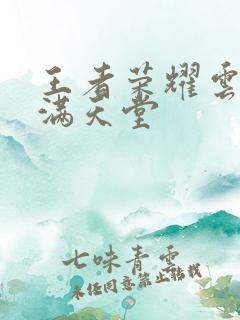 王者荣耀雲
满天堂
七味青雲
未经同意禁止转载